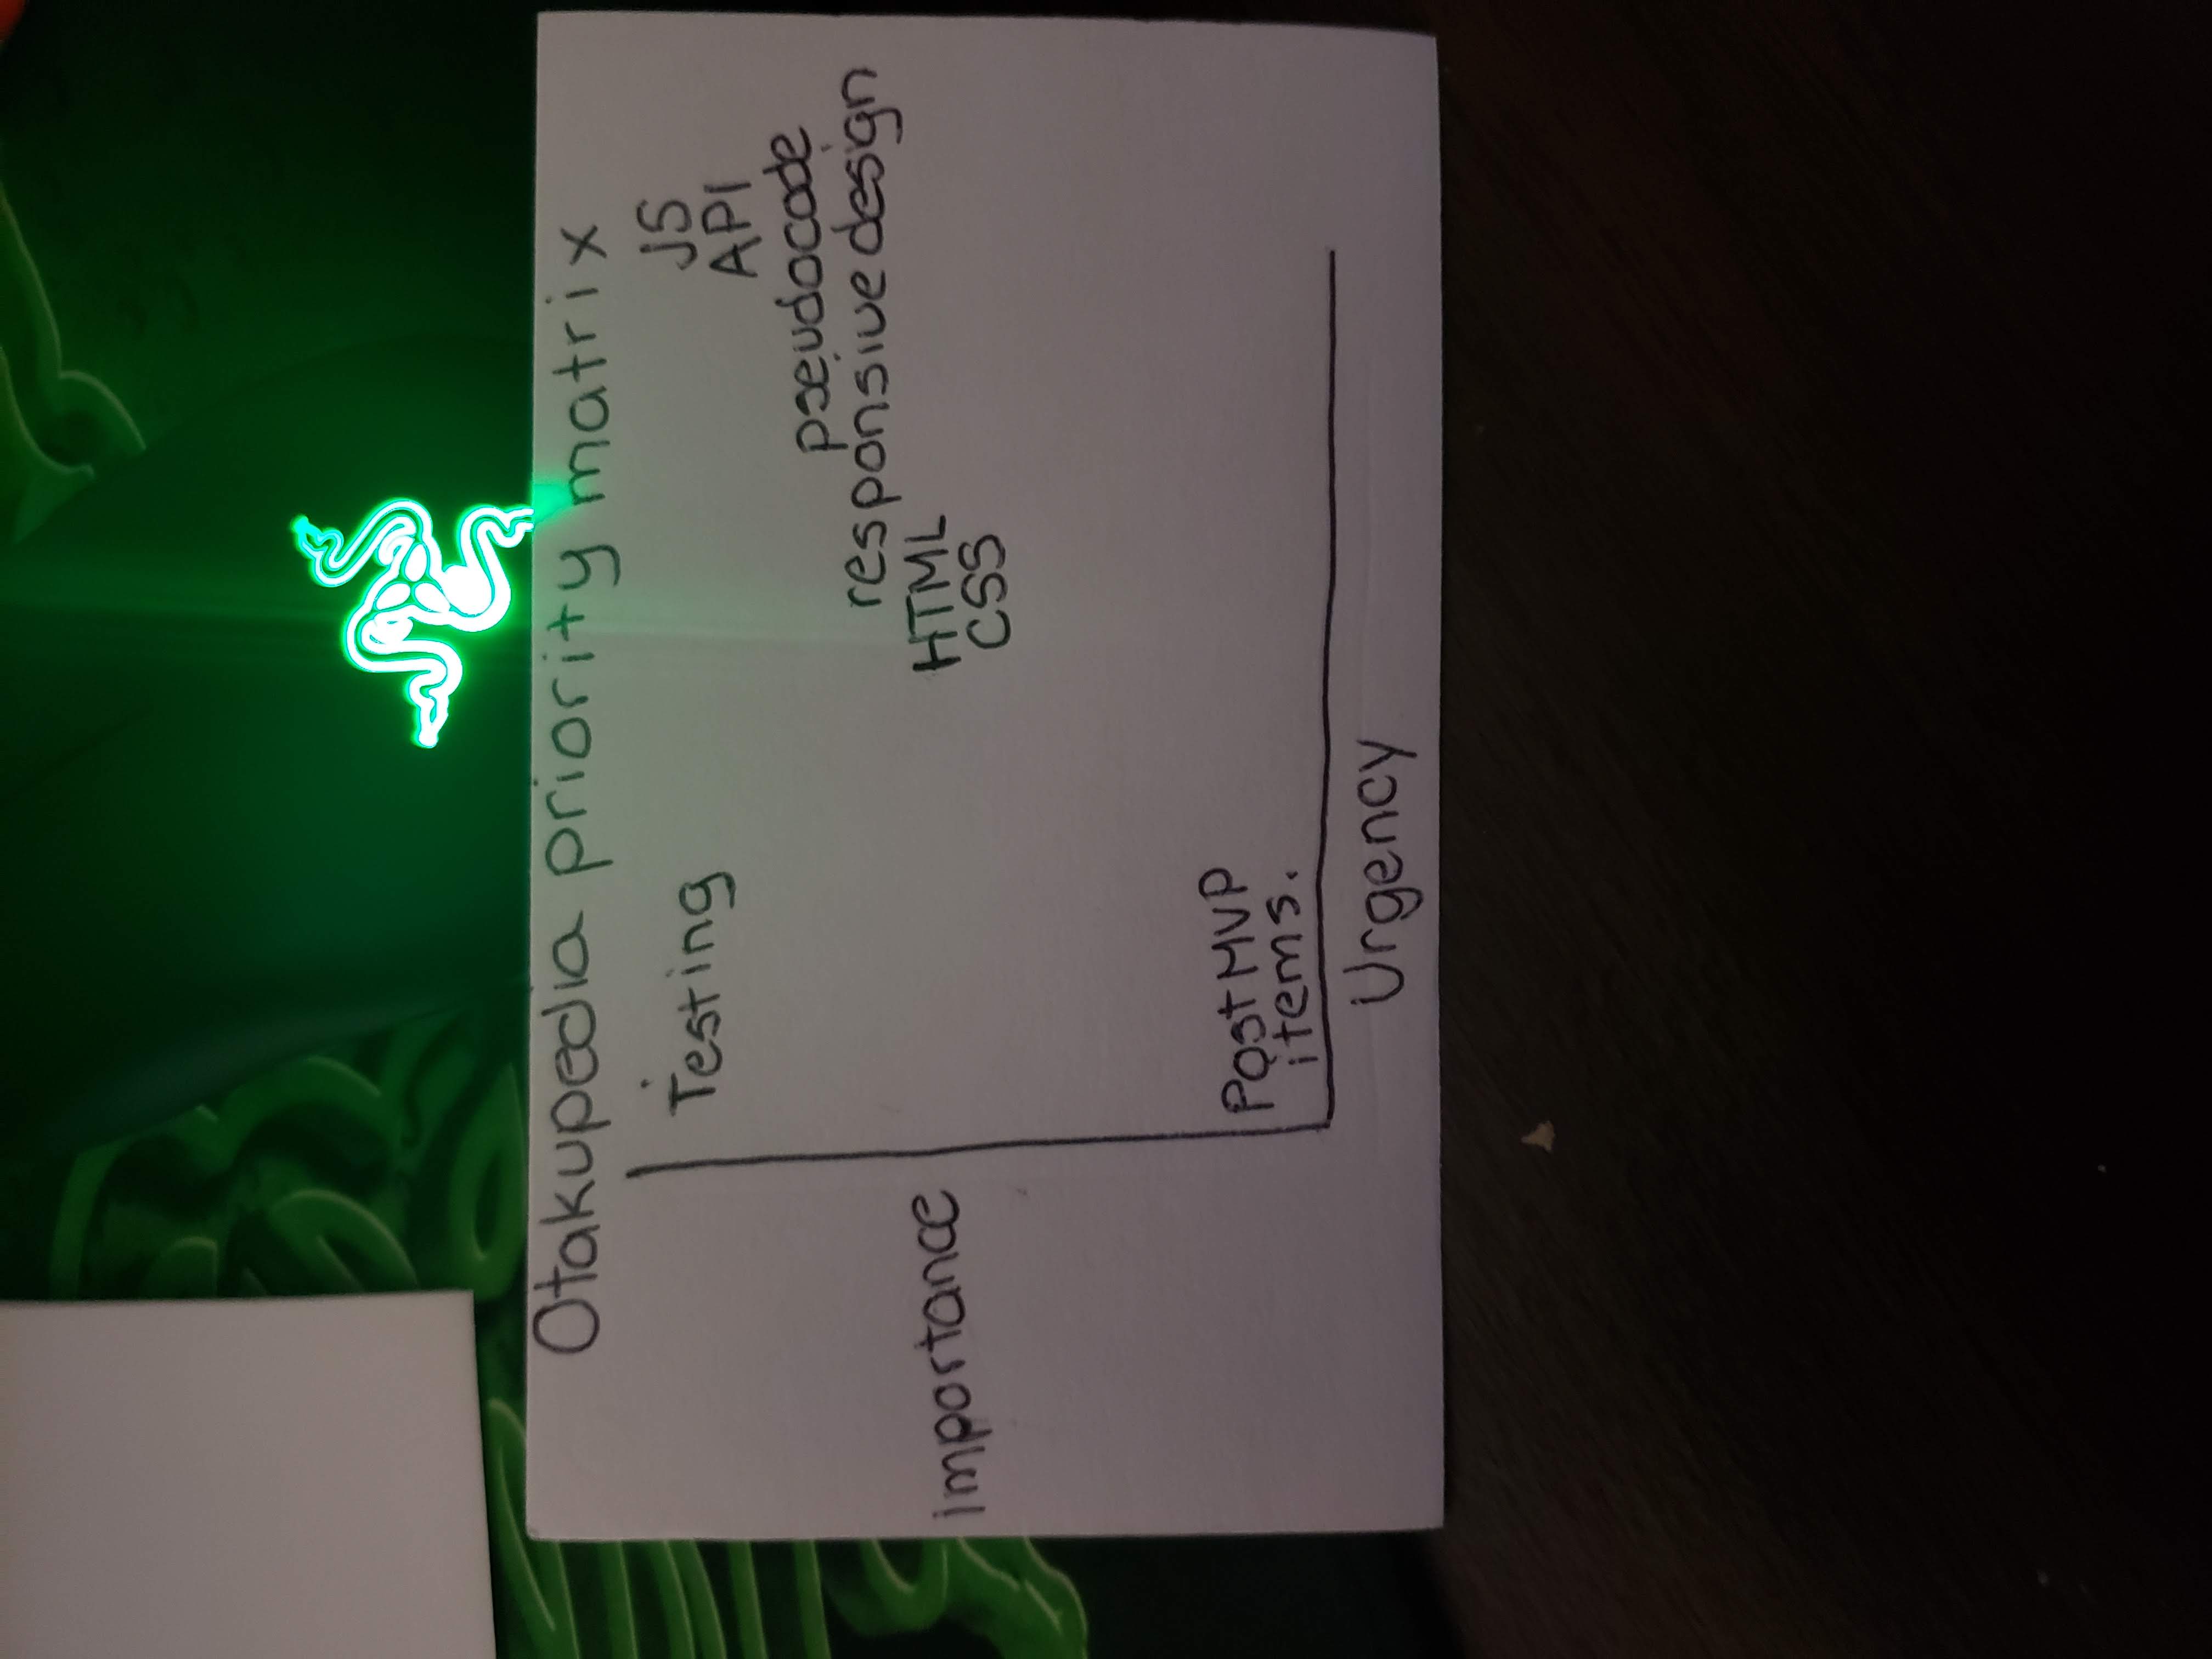 Otakupedia priority matrix
Testing
JS
API
pseudocode
responsive design
HTML
CSS
importance
Post MVP
items.
Urgency